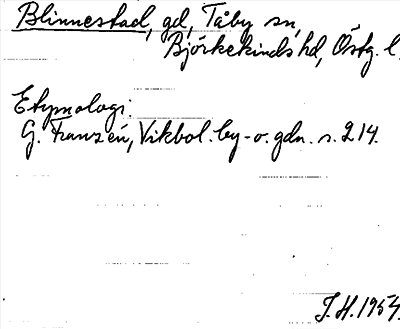 Blinnestad, gd, Tåby sn,
Björkekinds hd, Östg. l.
Etymologi:
G. Franzén, Vikbol. by- o. gdn. s. 214.
J.H. 1954.